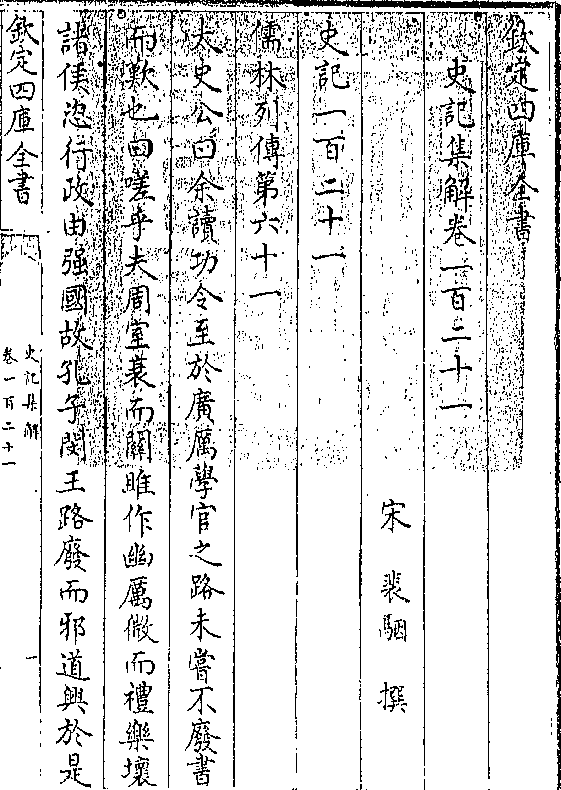 欽定四庫全書
史記集解卷一百二十一
宋 裴駰 撰
史記一百二十一
儒林列傳第六十一
太史公曰余讀功令至於廣厲學官之路未嘗不廢書
而歎也曰嗟乎夫周室衰而關雎作幽厲微而禮樂壞
諸侯恣行政由强國故孔子閔王路廢而邪道興於是
欽定四庫全書
史記集解
卷一百二十一
一